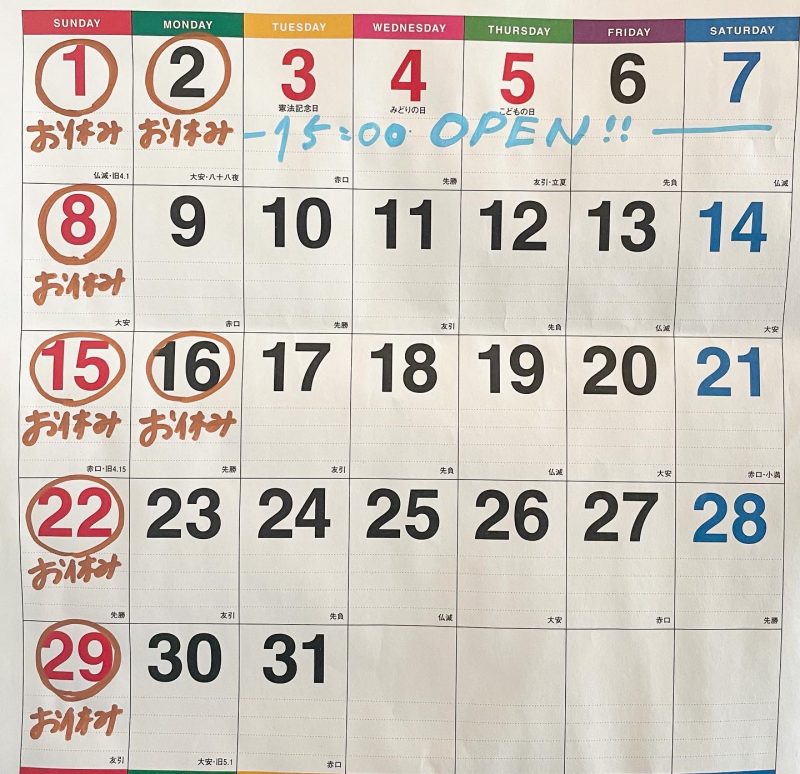 SUNDAY MONDAY TUESDAY WEDNESDAY THURSDAY FRIDAY SATURDAY
1 2 3 4 5 6 7
憲法記念日 みどりの日 こどもの日
お休み お休み -15:00 OPEN!!
仏滅・旧4.1 大安・八十八夜 赤口 先勝 友引・立夏 先負 仏滅
8 9 10 11 12 13 14
お休み
大安 赤口 先勝 友引 先負 仏滅 大安
15 16 17 18 19 20 21
お休み お休み
赤口・旧4.15 先勝 友引 先負 仏滅 大安 赤口・小満
22 23 24 25 26 27 28
お休み
先勝 友引 先負 仏滅 大安 赤口 先勝
29 30 31
お休み
友引 大安・旧5.1 赤口